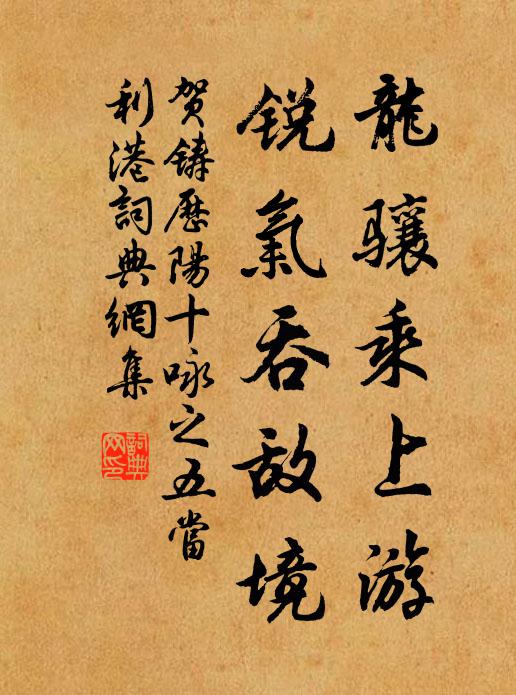 龍驤乘上游
銳氣吞敵境
賀鑄歷陽十咏之五當
利港詞典網集
詞典网印